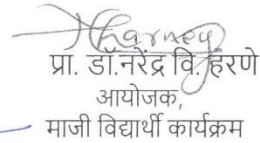 प्रा. डॉ.नरेंद्र वि. हरणे
आयोजक,
माजी विद्यार्थी कार्यक्रम